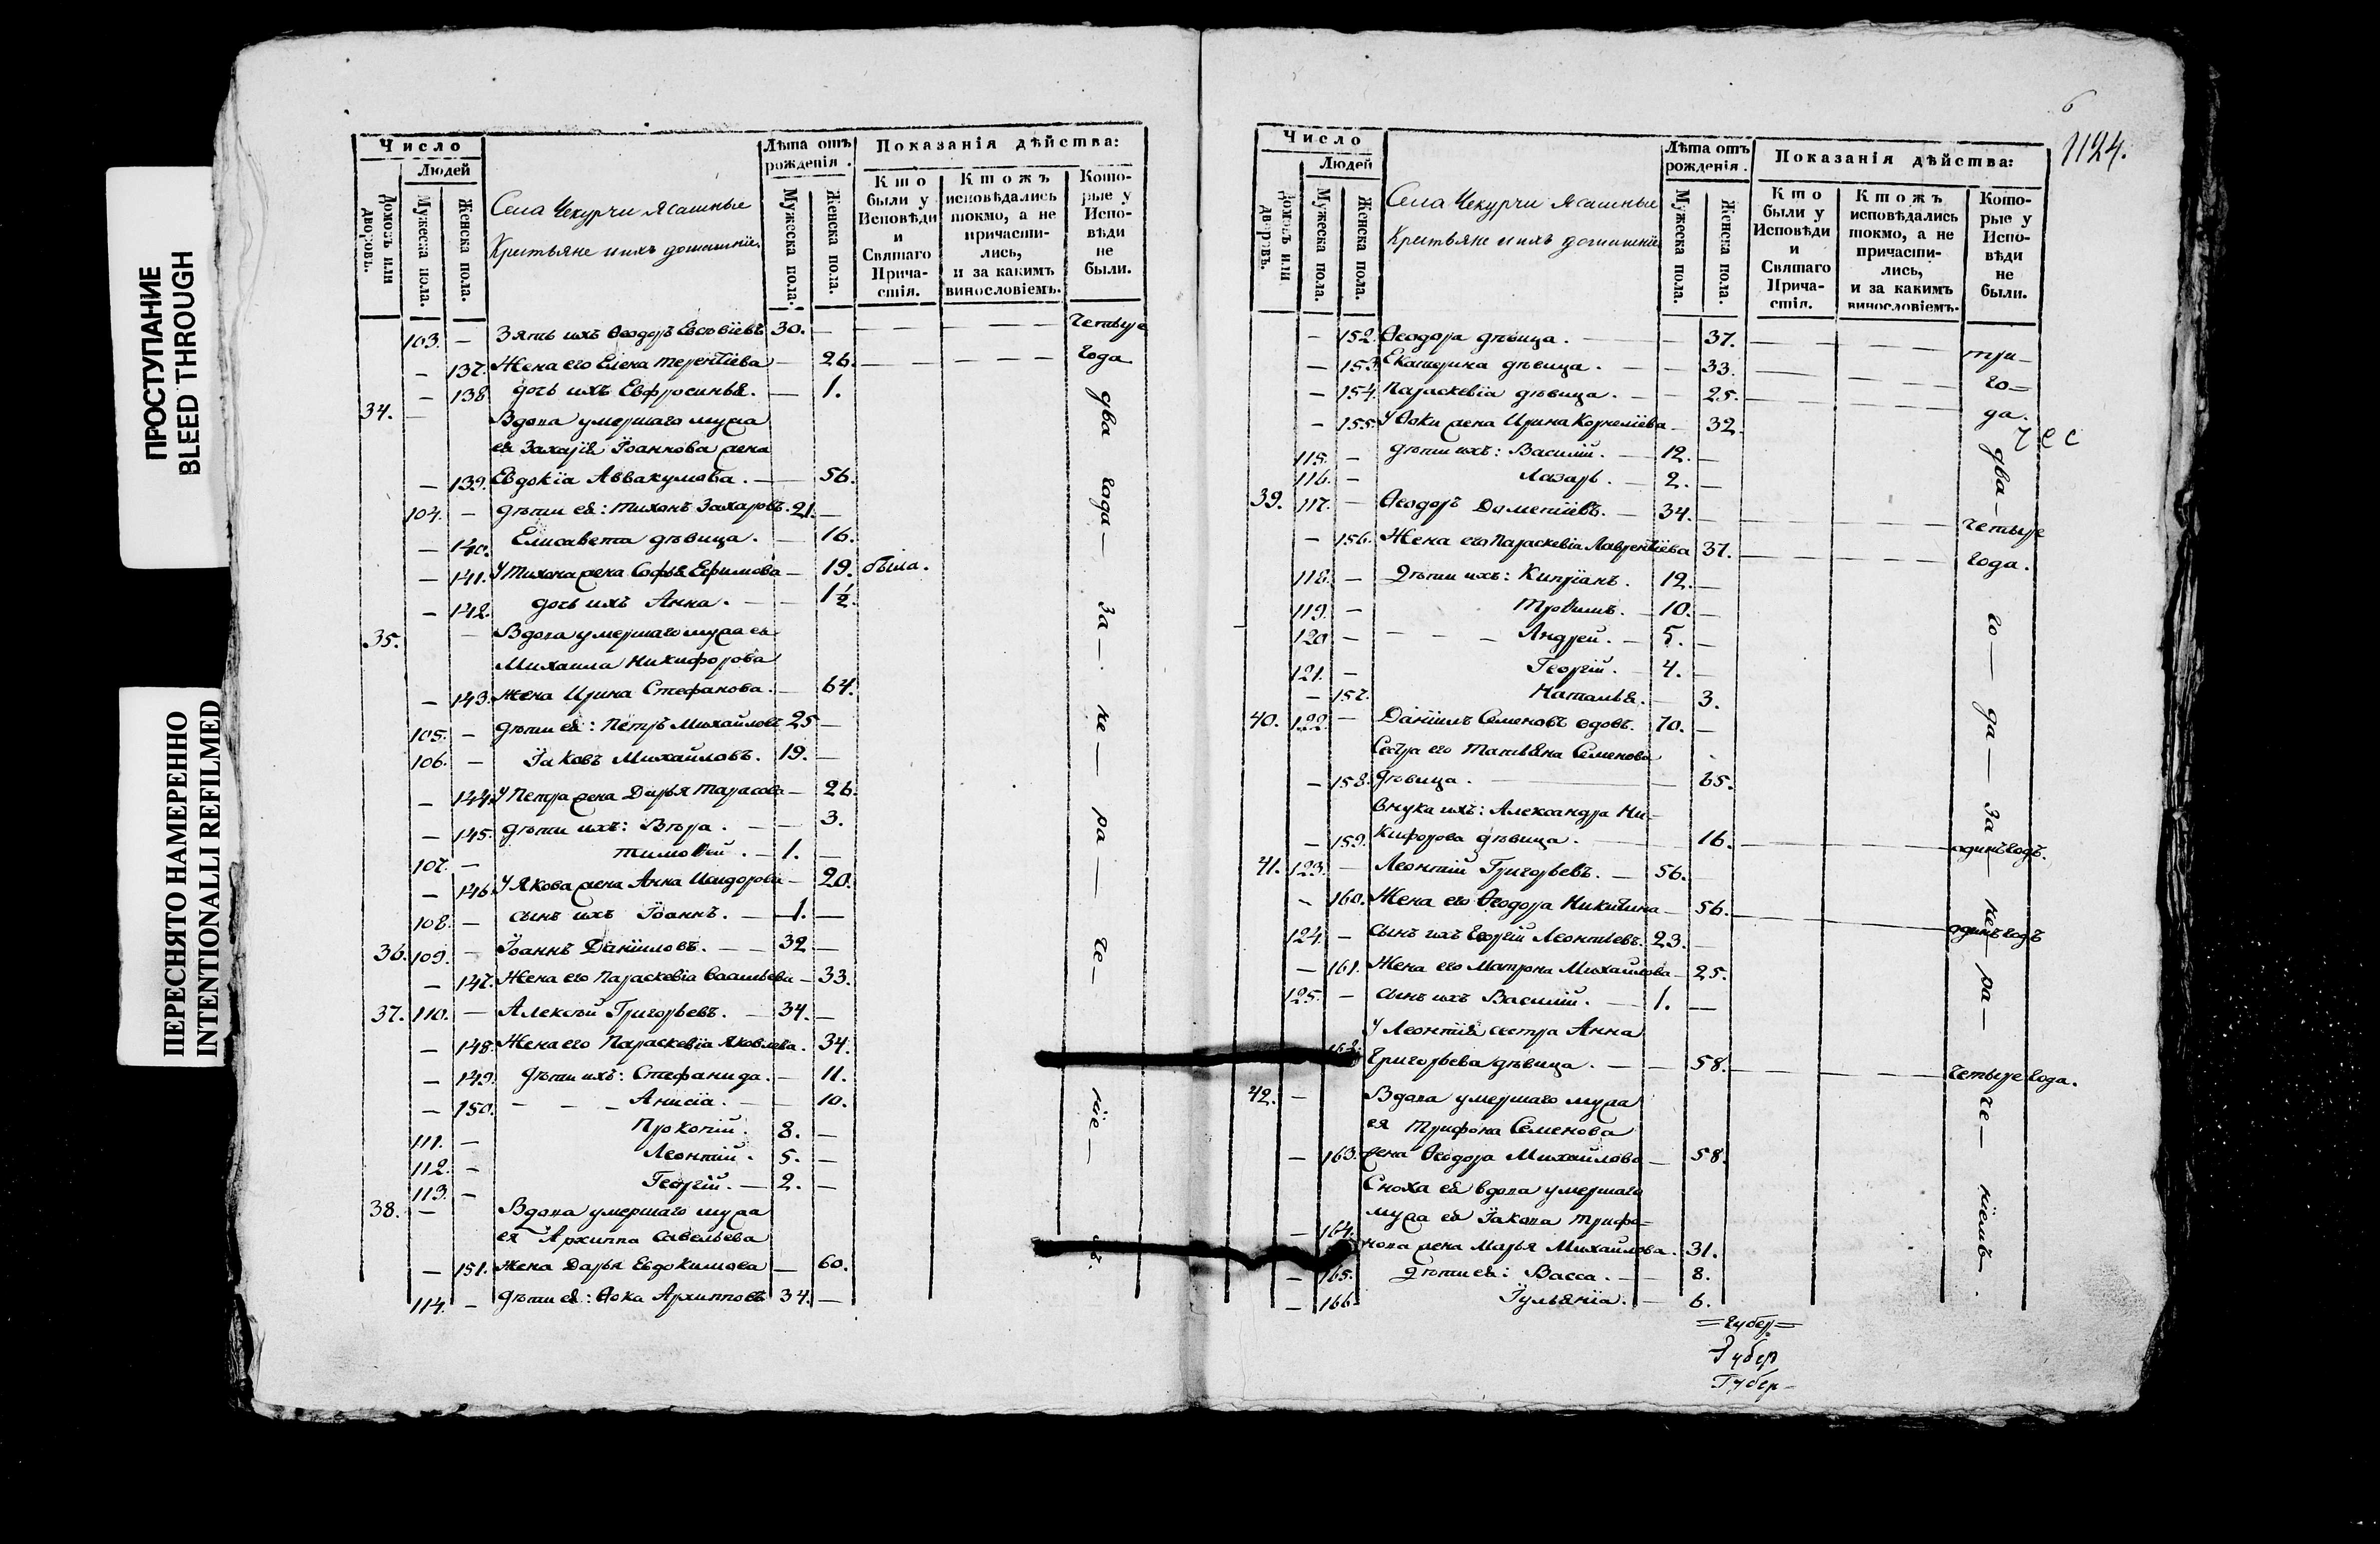 ПРОСТУПАНИЕ
BLEED THROUGH
ПЕРЕСНЯТО НАМЕРЕННО
INTENTIONALLI REFILMED
Число
Людей
Домовъ или дворовъ.
Мужеска пола.
Женска пола.
Села Чекурчи Ясашные
Крестьяне и ихъ домашніе.
Лѣта отъ рожденія.
Мужеска пола.
Женска пола.
Показанія дѣйства:
Кто были у Исповѣди и Святаго Причастія.
Ктожъ исповѣдались токмо, а не причастились, и за какимъ винословіемъ.
Которые у Исповѣди не были.
103. — Зять ихъ Ѳеодоръ Евсевіевъ 30. — четыре
— 137. Жена его Елена Терентіева — 26. года
— 138 дочь ихъ Евфросинья. — 1.
34. — Вдова умершаго мужа
ея Захарія Іоаннова жена
— 139. Евдокіа Аввакумова. — 56.
104. — дѣти ея: Тихонъ Захаровъ. 21. —
— 140. Елисавета дѣвица. — 16.
— 141. У Тихона жена Софья Ефимова — 19. была.
— 142. дочь ихъ Анна. — 1 1/2.
35. — Вдова умершаго мужа ея
Михаила Никифорова
— 143. жена Ирина Стефанова. — 64.
105. — дѣти ея: Петръ Михайловъ 25 —
106. — Іаковъ Михайловъ. 19. —
— 144. У Петра жена Дарья Тарасова — 26.
— 145. дѣти ихъ: Вѣра. — 3.
107. — Тимоѳей. — 1. —
— 146. У Якова жена Анна Исидорова — 20.
108. — сынъ ихъ Іоаннъ. — 1. —
36. 109. — Іоаннъ Даніиловъ. — 32 —
— 147. Жена его Параскевіа Васильева — 33.
37. 110. — Алексѣй Григорьевъ. — 34. —
— 148. Жена его Параскевіа Яковлева. 34.
— 149. дѣти ихъ: Стефанида. — 11.
— 150. — Анисіа. — 10.
111. — Прокопій. 8. —
112. — Леонтій. 5. —
113. — Георгій. — 2. —
38. — Вдова умершаго мужа
ея Архиппа Савельева
— 151. жена Дарья Евдокимова — 60.
114. — дѣти ея: Ѳока Архипповъ 34. —
два года — за — не — ра — че — ніе —
6
1124.
Число
Людей
Домовъ или дворовъ.
Мужеска пола.
Женска пола.
Села Чекурчи Ясашные
Крестьяне и ихъ домашніе
Лѣта отъ рожденія.
Мужеска пола.
Женска пола.
Показанія дѣйства:
Кто были у Исповѣди и Святаго Причастія.
Ктожъ исповѣдались токмо, а не причастились, и за какимъ винословіемъ.
Которые у Исповѣди не были.
— 152. Ѳеодора дѣвица. — 37. три —
— 153. Екатерина дѣвица. — 33. го=
— 154. Параскевіа дѣвица. — 25. да.
— 155. У Ѳоки жена Ирина Корнеліева — 32.
115. — дѣти ихъ: Василій. — 12. —
116. — Лазарь. — 2. —
39. 117. — Ѳеодоръ Дометіевъ. — 34. — четыре
— 156. Жена его Параскевіа Лаврентіева 37. года.
118. — Дѣти ихъ: Кипріанъ. 12. —
119. — Трофимъ. — 10. —
120 — Андрей. — 5. —
121. — Георгій. — 4. —
— 157. Наталья. — 3.
40. 122. — Даніилъ Семеновъ вдовъ. 70. —
Сестра его Татьяна Семенова
— 158. дѣвица. — 65.
внука ихъ: Александра Ни=
— 159. кифорова дѣвица. — 16. — одинъ годъ.
41. 123. — Леонтій Григорьевъ. — 56. —
— 160. Жена его Ѳеодора Никитина — 56. — одинъ годъ
124. — сынъ ихъ Георгій Леонтьевъ. 23. —
— 161. Жена его Матрона Михайлова — 25.
125. — сынъ ихъ Василій. — 1. —
У Леонтія сестра Анна
162. Григорьева дѣвица. — 58. — четыре года.
42. — Вдова умершаго мужа
ея Трифона Семенова
— 163. жена Ѳеодора Михайлова — 58.
Сноха ея вдова умершаго
— 164. мужа ея Іакова Трифо=
нова жена Марья Михайлова. 31.
— 165. Дѣти ея: Васса. — 8.
— 166. Іульянія. — 6.
два — го — да — за — не — ра — че — ніемъ.
=Губер=
Губер
Губер-